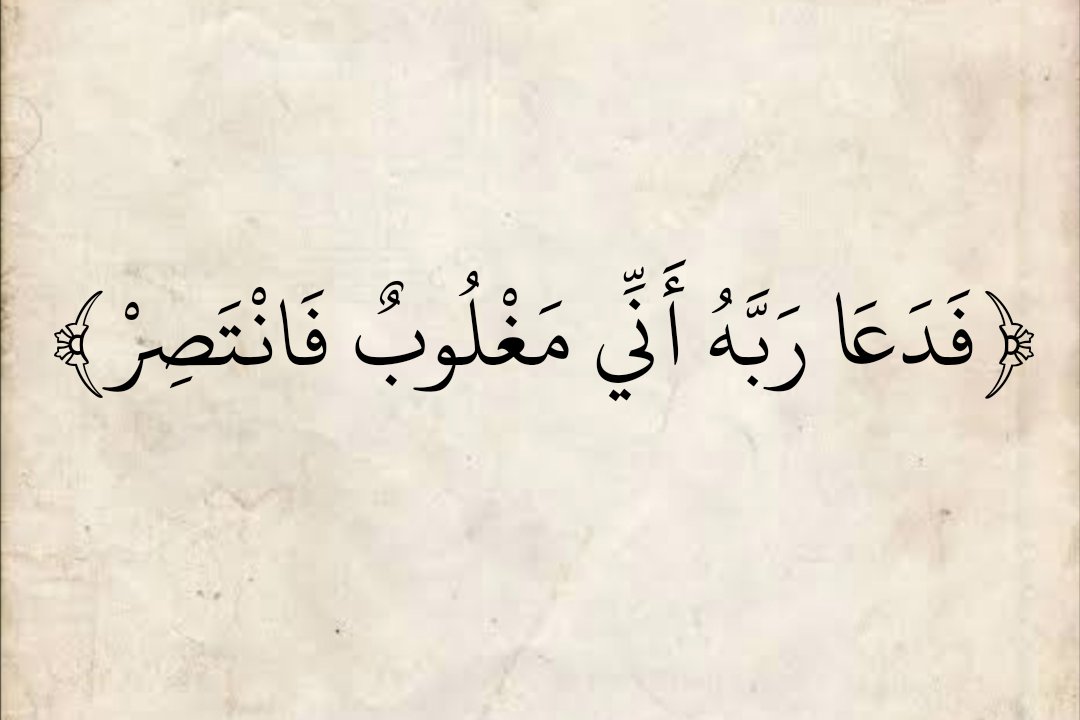 ﴿فَدَعَا رَبَّهُ أَنِّي مَغْلُوبٌ فَانْتَصِرْ﴾